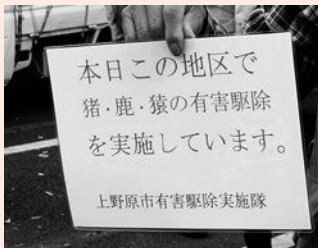 本日この地区で
猪・鹿・猿の有害駆除
を実施しています。
上野原市有害駆除実施隊